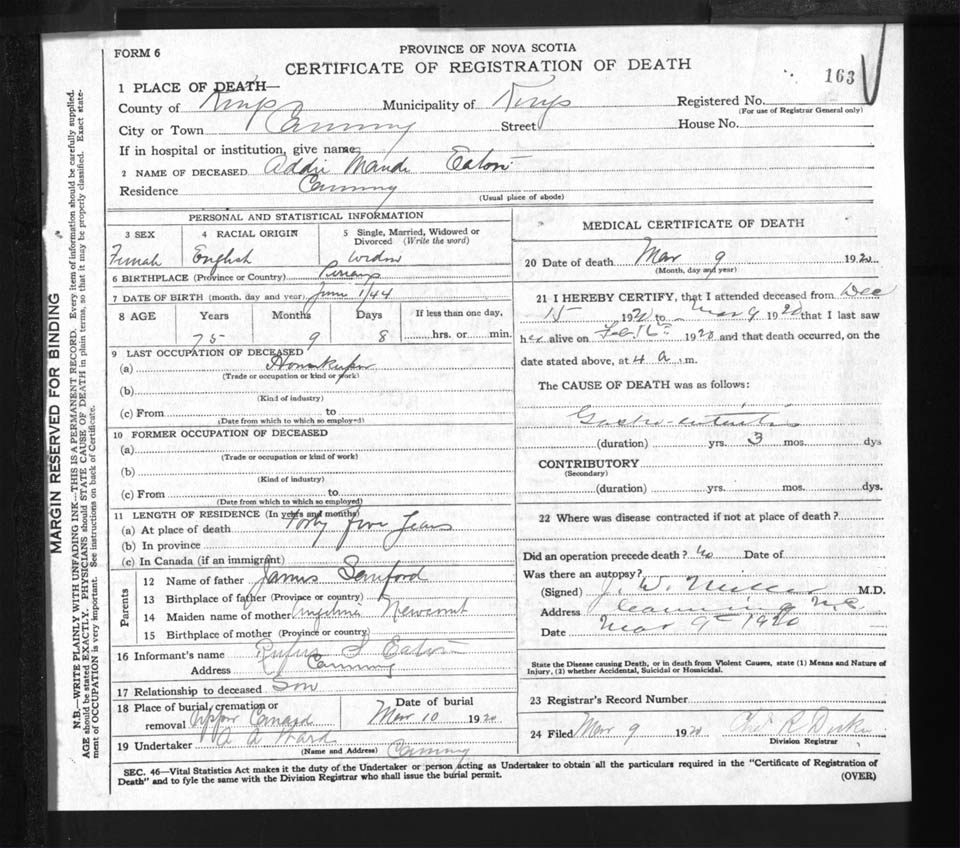 FORM 6
PROVINCE OF NOVA SCOTIA
CERTIFICATE OF REGISTRATION OF DEATH
163
1 PLACE OF DEATH—
County of Kings Municipality of Kings Registered No.
(For use of Registrar General only)
City or Town Canning Street House No.
If in hospital or institution, give name
2 NAME OF DECEASED Addie Maude Eaton
Residence Canning
(Usual place of abode)
PERSONAL AND STATISTICAL INFORMATION
3 SEX 4 RACIAL ORIGIN 5 Single, Married, Widowed or Divorced (Write the word)
Female English Widow
6 BIRTHPLACE (Province or Country)
7 DATE OF BIRTH (month, day and year) June 1/44
8 AGE Years Months Days If less than one day,
75 9 8 hrs. or min.
9 LAST OCCUPATION OF DECEASED
(a) Housekeeper
(Trade or occupation or kind of work)
(b)
(Kind of industry)
(c) From to
(Date from which to which so employed)
10 FORMER OCCUPATION OF DECEASED
(a)
(Trade or occupation or kind of work)
(b)
(Kind of industry)
(c) From to
(Date from which to which so employed)
11 LENGTH OF RESIDENCE (In years and months)
(a) At place of death Forty Five Years
(b) In province
(c) In Canada (if an immigrant)
Parents
12 Name of father James Sanford
13 Birthplace of father (Province or country)
14 Maiden name of mother Newcomb
15 Birthplace of mother (Province or country)
16 Informant's name Rufus Eaton
Address Canning
17 Relationship to deceased Son
18 Place of burial, cremation or removal Upper Canard Date of burial Mar 10 1920
19 Undertaker A A Ward Canning
(Name and Address)
MEDICAL CERTIFICATE OF DEATH
20 Date of death Mar 9 1920
(Month, day and year)
21 I HEREBY CERTIFY, that I attended deceased from Dec
15 1920 to Mar 9 1920 that I last saw
her alive on Feb 1920 and that death occurred, on the
date stated above, at 4 a.m.
The CAUSE OF DEATH was as follows:
Gastro-enteritis
(duration) yrs. 3 mos. dys
CONTRIBUTORY
(Secondary)
(duration) yrs. mos. dys.
22 Where was disease contracted if not at place of death?
Did an operation precede death? no Date of
Was there an autopsy?
(Signed) J. W. Miller M.D.
Address Canning N.S.
Date Mar 9th 1920
State the Disease causing Death, or in death from Violent Causes, state (1) Means and Nature of
Injury, (2) whether Accidental, Suicidal or Homicidal.
23 Registrar's Record Number
24 Filed Mar 9 1920
Division Registrar
SEC. 46—Vital Statistics Act makes it the duty of the Undertaker or person acting as Undertaker to obtain all the particulars required in the "Certificate of Registration of
Death" and to fyle the same with the Division Registrar who shall issue the burial permit. (OVER)
MARGIN RESERVED FOR BINDING
N.B.—WRITE PLAINLY WITH UNFADING INK—THIS IS A PERMANENT RECORD. Every item of information should be carefully supplied.
AGE should be stated EXACTLY. PHYSICIANS should STATE CAUSE OF DEATH in plain terms, so that it may be properly classified. Exact state-
ment of OCCUPATION is very important. See instructions on back of Certificate.